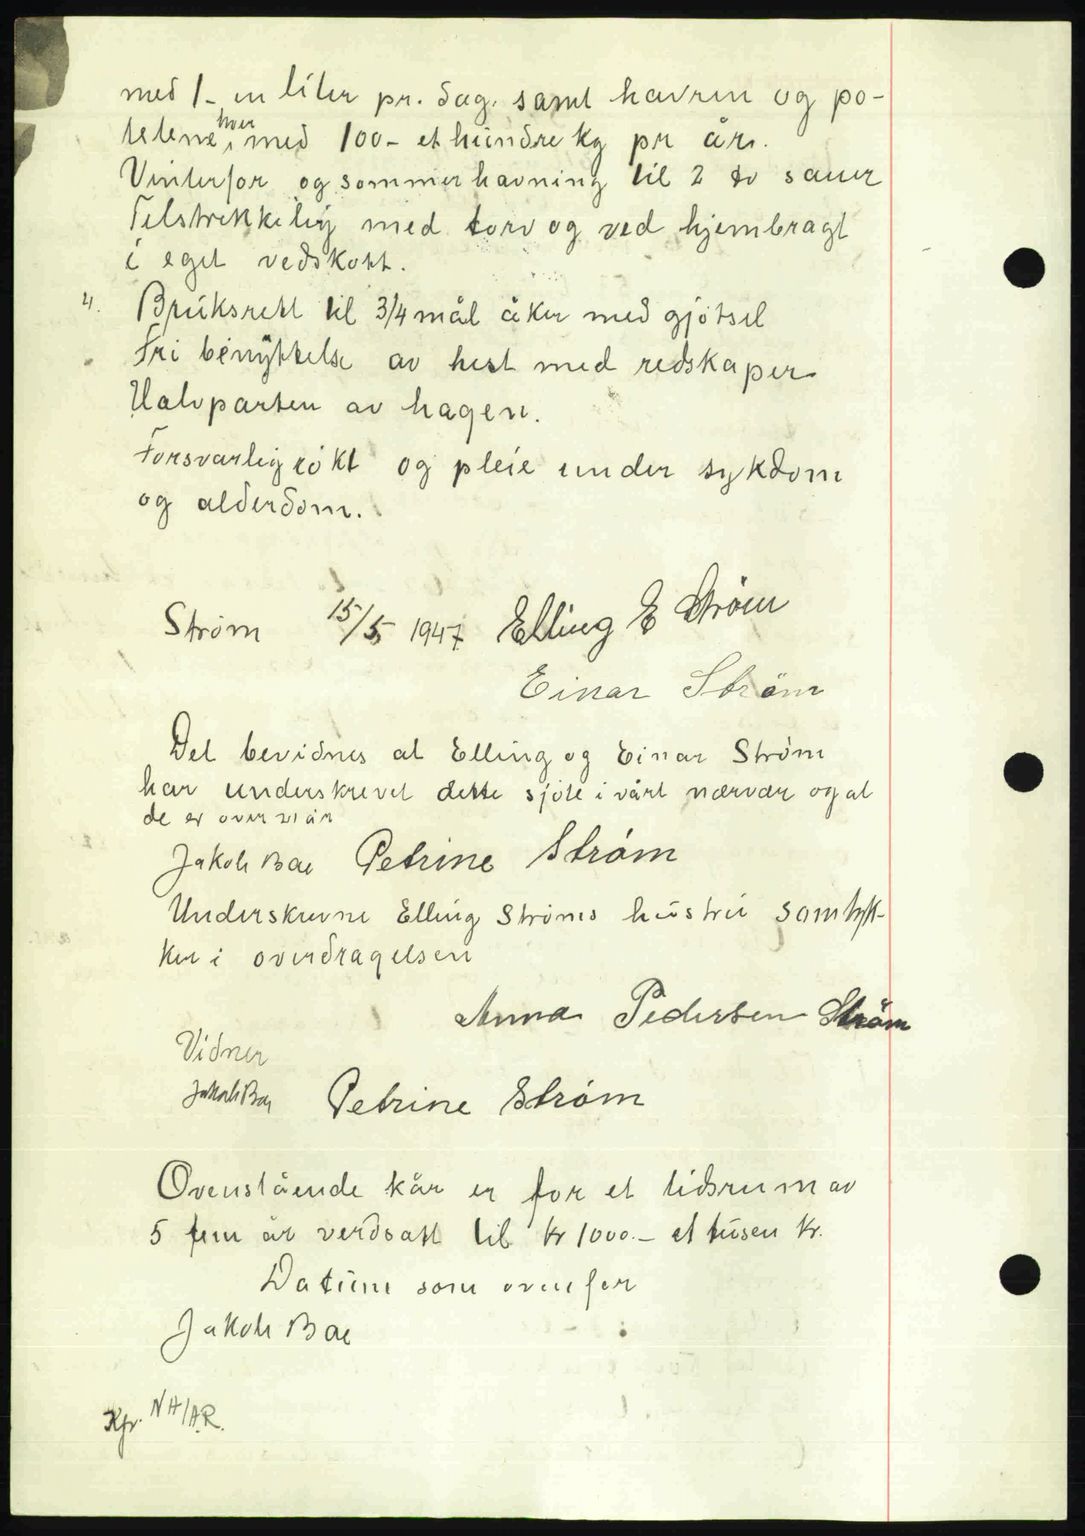 med 1- en liter pr. dag. samt havren og po-
tetene hver med 100- et hundre kg pr år.
Vinterfor og sommerhavning til 2 to sauer
Tilstrekkelig med torv og ved hjembragt
i eget vedskott.
4. Bruksrett til 3/4 mål åker med gjötsel
Fri benyttelse av hest med redskaper
Halvparten av hagen.
Forsvarlig rökt og pleie under sykdom
og alderdom.
Ström 15/5 1947 Elling E Ström
Einar Ström
Det bevidnes at Elling og Einar Ström
har underskrevet dette sjöte i vårt nærvær og at
de er over 21 år
Jakob Bae Petrine Ström
Underskrevne Elling Ströms hustru samtyk-
ker i overdragelsen
Anna Pedersen Ström
Vidner
Jakob Bae Petrine Ström
Ovenstående kår er for et tidsrum av
5 fem år verdsatt til kr 1000.- et tusen kr.
Datum som ovenfor
Jakob Bae
Kfr. NH/A.R.